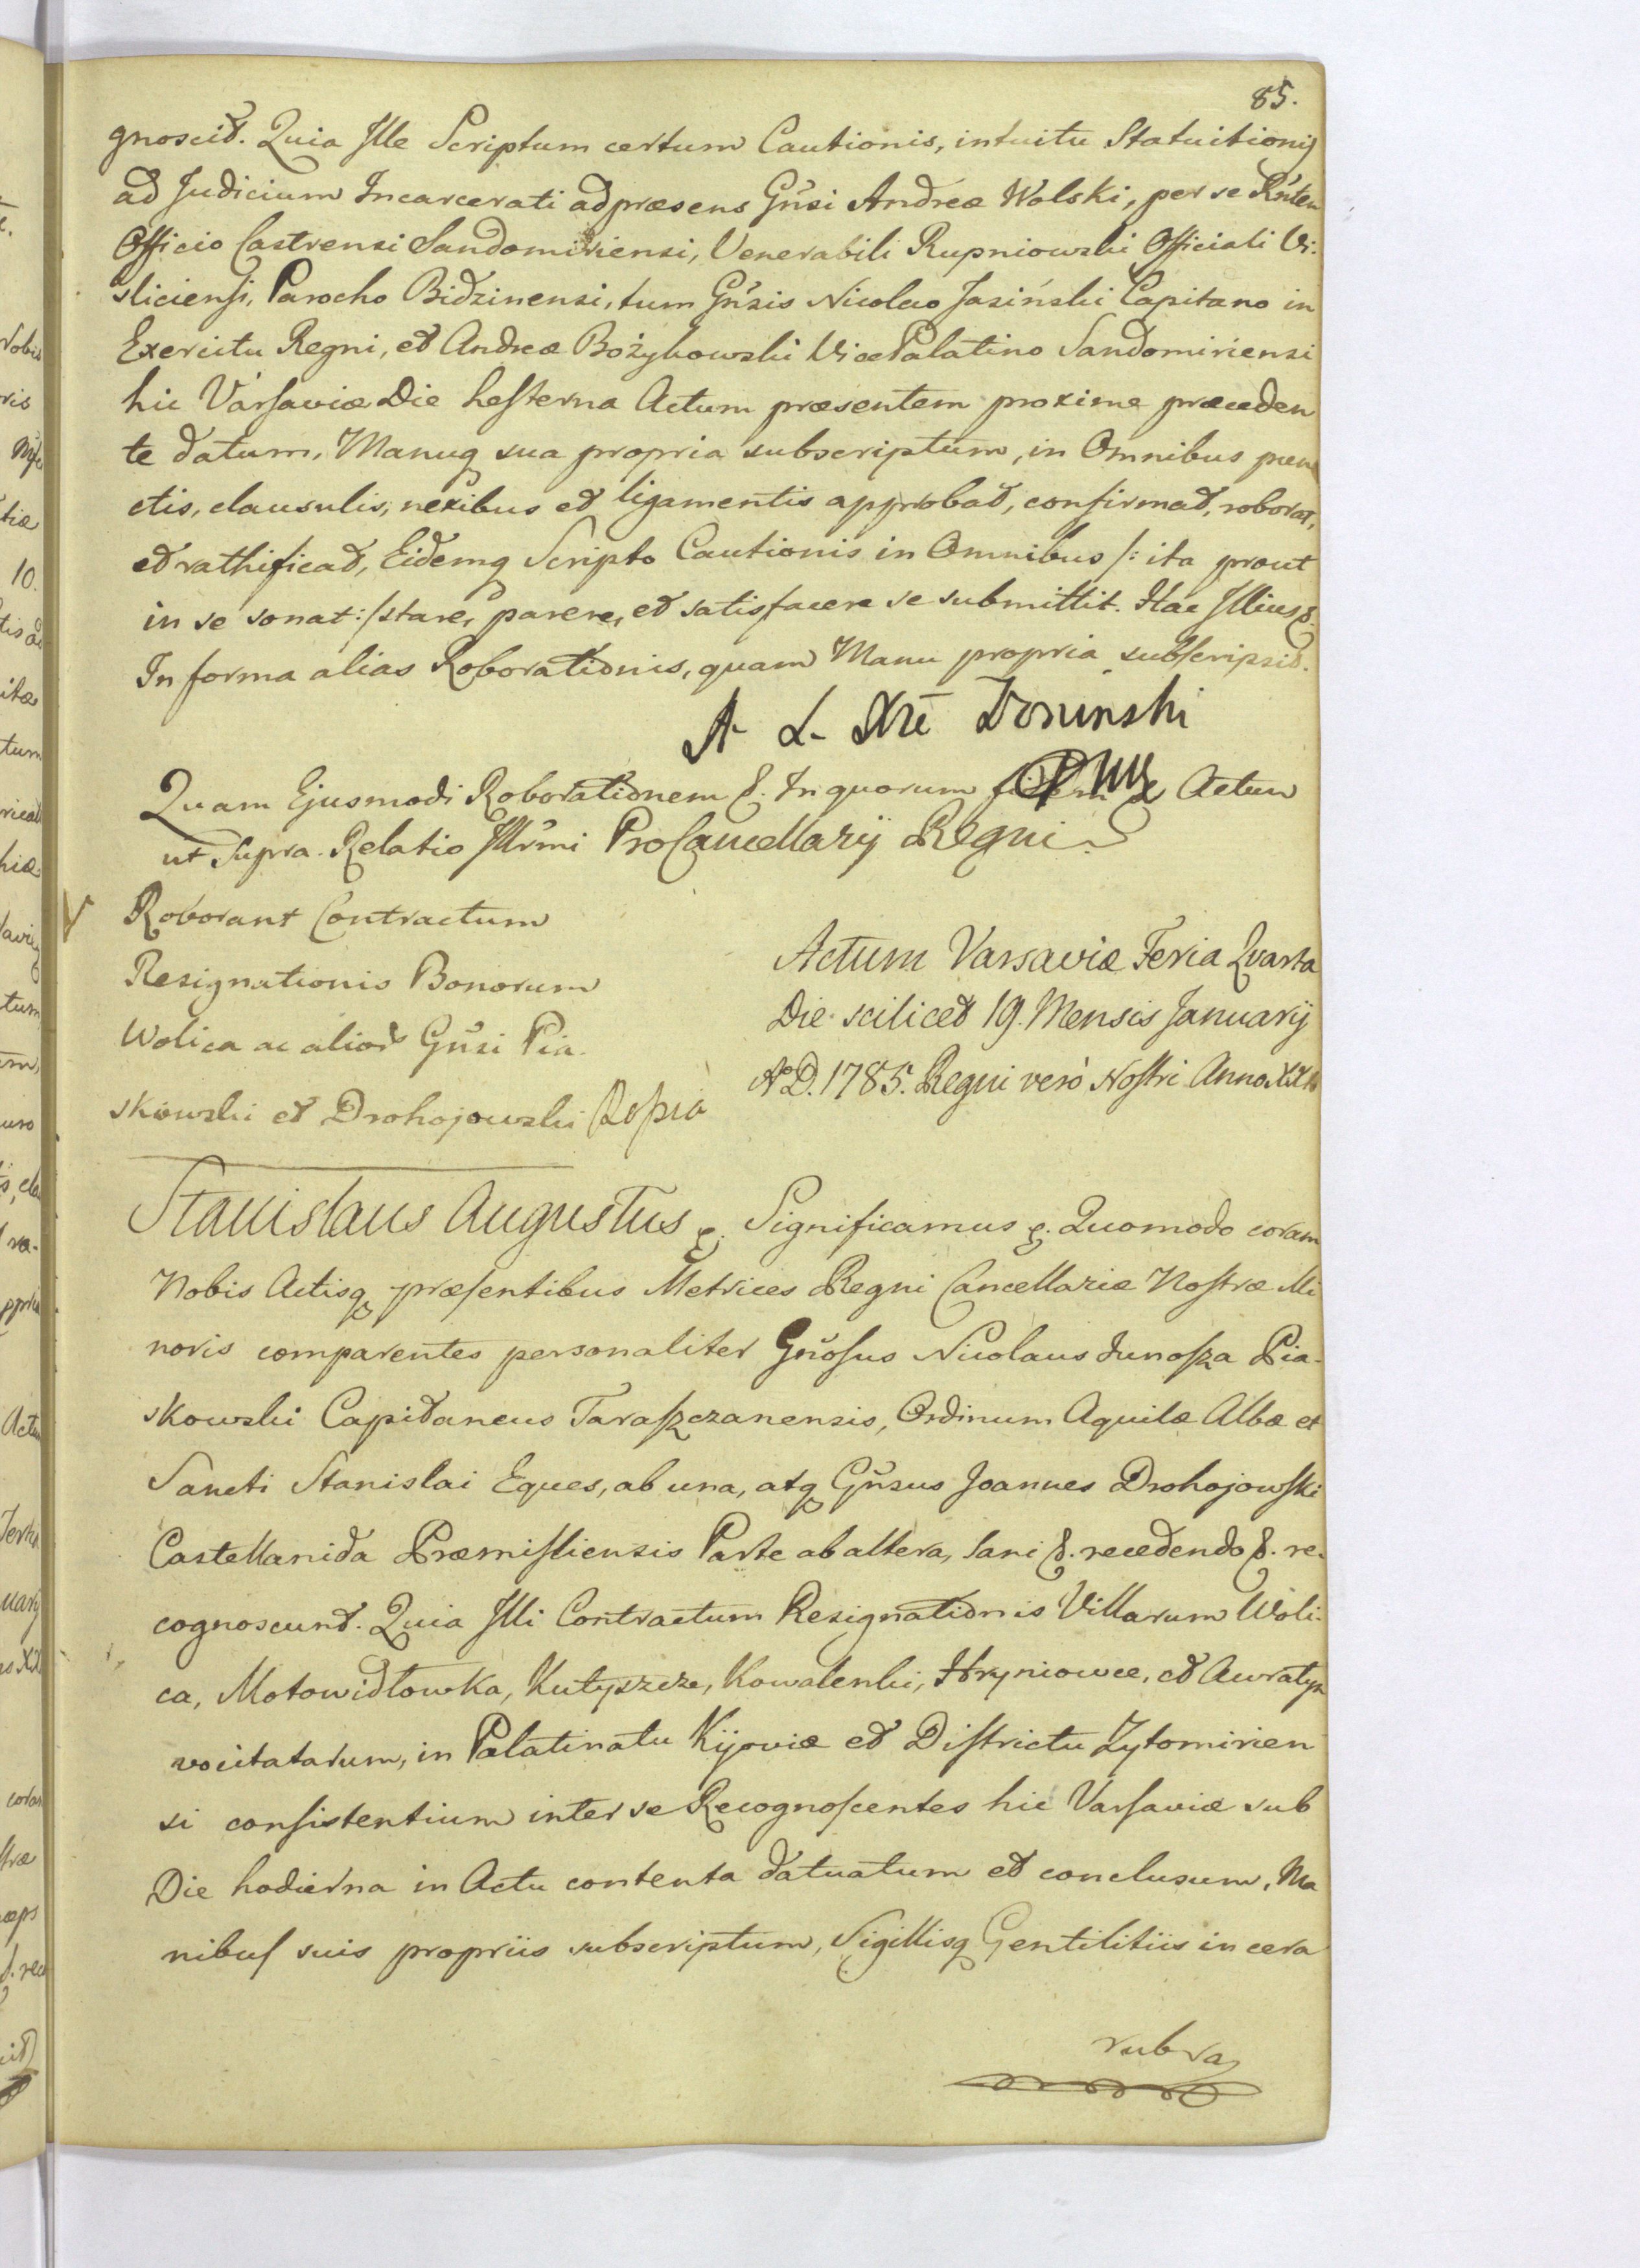 85.
gnoscit. Quia Ille Scriptum certum Cautionis, intuitu Statuitionis
ad Judicium Incarcerati ad præsens Gñsi Andreæ Wolski, per se Rñtem
Officio Castrensi Sandomiriensi, Venerabili Rupniowski Officiali Vi:
sliciensi, Parocho Bidzinensi, tum Gñsis Nicolao Jasiński Capitano in
Exercitu Regni, et Andreæ Bożykowski Vice Palatino Sandomiriensi
hic Varsaviæ Die hesterna Actum præsentem proxime præceden
te datum, Manuq sua propria subscriptum, in Omnibus pun
ctis, clausulis, nexibus et ligamentis approbat, confirmat, roborat,
et rathificat, Eidemq Scripto Cautionis in Omnibus /: ita prout
in se sonat :/ stare, parere, et satisfacere se submittit. Hac Illius &.
In forma alias Roborationis, quam Manu propria subscripsit.
A L
Quam Ejusmodi Roborationem &. In quorum fidem & Actum
ut Supra. Relatio Illrmi ProCancellarij Regni
Roborant Contractum
Resignationis Bonorum
Wolica ac aliors Gñsi Pia.
skowski et Drohojowski
Actum Varsaviæ Feria Quarta
Die scilicet 19. Mensis Januarij
A.D. 1785. Regni verò Nostri Anno XXI
Stanislaus Augustus &. Significamus &. Quomodo coram
Nobis Actisq præsentibus Metrices Regni Cancellariæ Nostræ Mi
noris comparentes personaliter Gñosus Nicolaus Junosza Pia-
skowski Capitaneus Taraszczanensis, Ordinum Aquilæ Albæ et
Sancti Stanislai Eques, ab una, atq Gñsus Joannes Drohojowski
Castellanida Præmisliensis Parte ab altera, Sani &. recedendo &. re.
cognoscunt. Quia Illi Contractum Resignationis Villarum Woli.
ca, Motowidłowka, Kutyszcze, Kowalenki, Hryniowce, et Awratyn
vocitatarum, in Palatinatu Kijoviæ et Districtu Zytomirien
si consistentium inter se Recognoscentes hic Varsaviæ sub
Die hodierna in Actu contenta datuatum et conclusum, Ma
nibus suis propriis subscriptum, Sigillisq Gentilitiis in cera
rubra